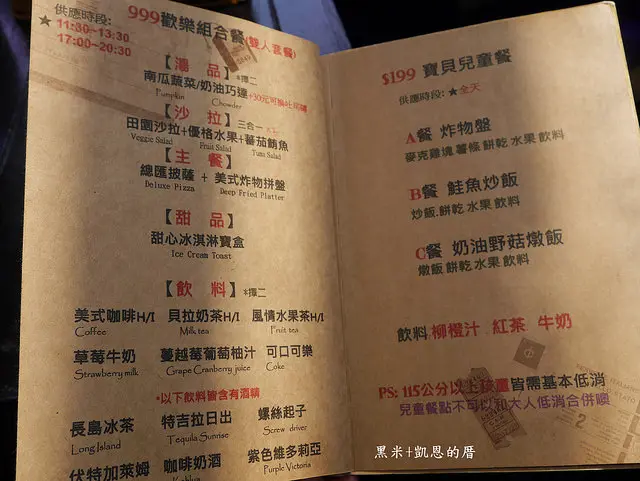 供應時段:
★ 11:30~13:30
17:00~20:30
999歡樂組合餐(雙人套餐)
【湯 品】*擇二
南瓜蔬菜/奶油巧達
Pumpkin Chowder
【沙 拉】三合一
田園沙拉+優格水果+蕃茄鮪魚
Veggie Salad Fruit Salad Tuna Salad
【主 餐】
總匯披薩 + 美式炸物拼盤
Deluxe Pizza Deep Fried Platter
【甜 品】
甜心冰淇淋寶盒
Ice Cream Toast
【飲 料】*擇二
美式咖啡H/I 貝拉奶茶H/I 風情水果茶H/I
Coffee Milk tea Fruit tea
草莓牛奶 蔓越莓葡萄柚汁 可口可樂
Strawberry milk Grape Cranberry juice Coke
•以下飲料皆含有酒精
長島冰茶 特吉拉日出 螺絲起子
Long Island Tequila Sunrise Screw driver
伏特加萊姆 咖啡奶酒 紫色維多莉亞
Kahlua Purple Victoria
$199 寶貝兒童餐
供應時段: ★全天
A餐 炸物盤
麥克雞塊 薯條 餅乾 水果 飲料
B餐 鮭魚炒飯
炒飯.餅乾 水果 飲料
C餐 奶油野菇燉飯
燉飯 餅乾 水果 飲料
飲料 柳橙汁 紅茶 牛奶
PS: 115公分以上孩童皆需基本低消
兒童餐點不可以和大人低消合併噢
黑米+凱恩的厝